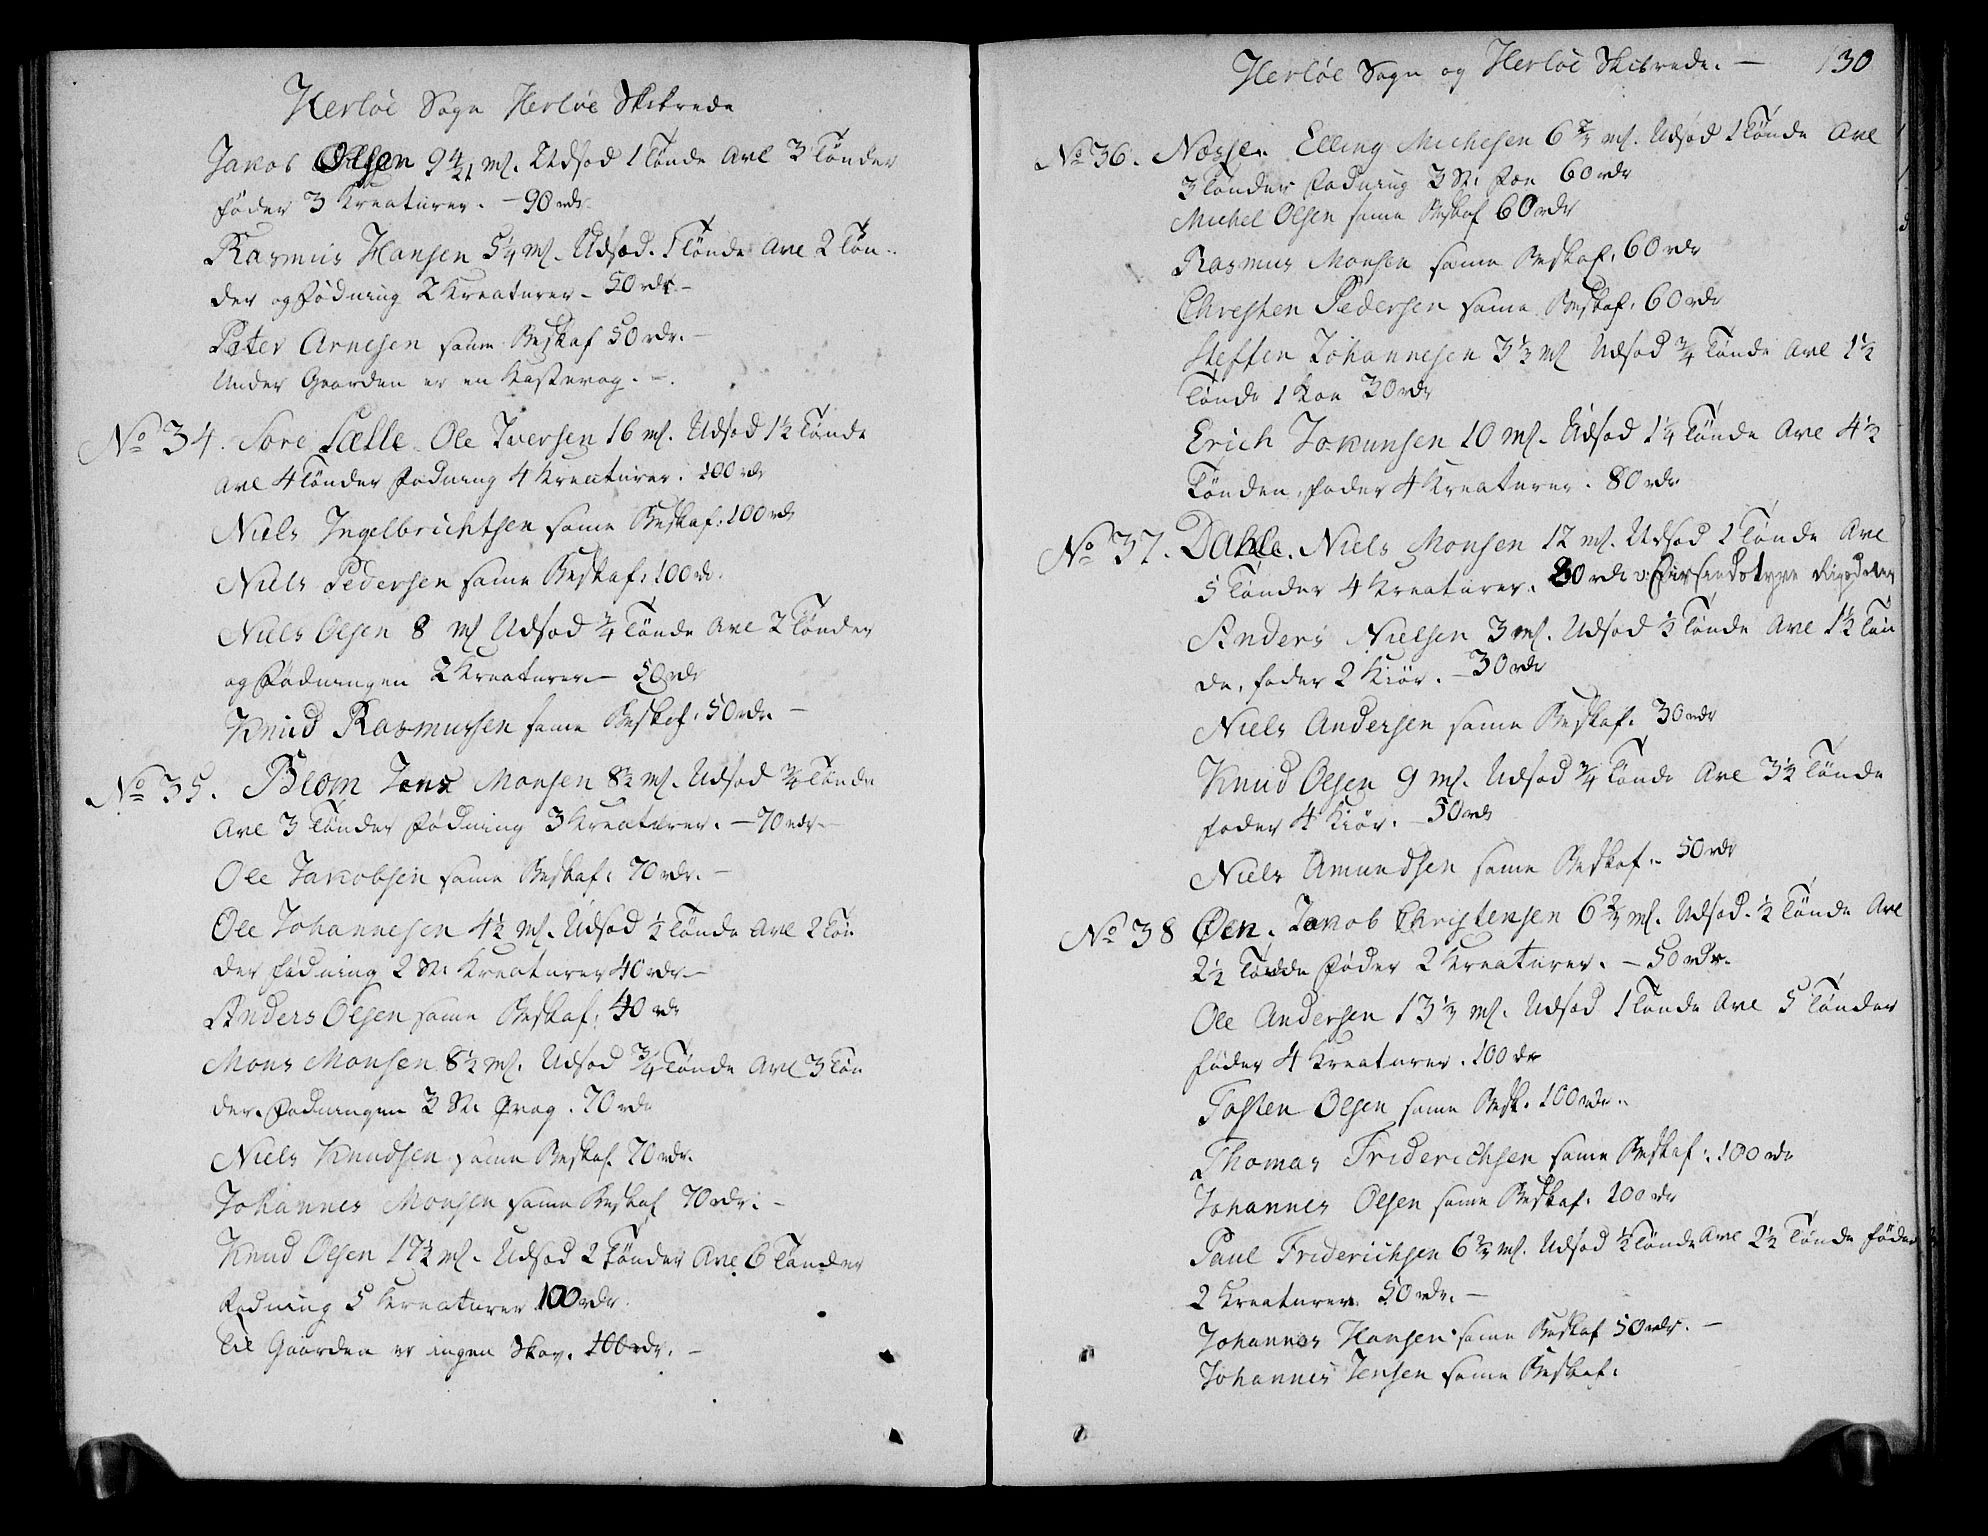 Herløe Sogn Herløe Skibrede
Jakob Olsen 9 ml. Udsæd 1 Tønde Avl 3 Tønder
føder 3 Kreaturer. – 90 rdr.
Rasmus Hansen 5¼ ml. Udsæd. 1 Tønde Avl 2 Tøn-
der og Fødning 2 Kreaturer – 50 rdr. –
Peter Arnesen same Beskaf 50 rdr. –
Under Gaarden er en Kastevog. –
No 34. Sore Sælle Ole Iversen 16 ml. Udsæd 1½ Tønde
Avl 4 Tønder Fødning 4 Kreaturer. 100 rdr
Niels Ingelbrichtsen same Beskaf: 100 rdr
Niels Pedersen same Beskaf: 100 rdr.
Niels Olsen 8 ml Udsæd ¾ Tønde Avl 2 Tønder
og Fødningen 2 Kreaturer – 50 rdr
Knud Rasmussen same Beskaf: 50 rdr. –
No 35. Blom Jens Monsen 8½ ml. Udsæd ¾ Tønde
Avl 3 Tønder Fødning 3 Kreaturer. – 70 rdr. –
Ole Jakobsen same Beskaf: 70 rdr. –
Ole Johannesen 4½ ml. Udsæd ½ Tønde Avl 2 Tøn
der fødning 2 St: Kreaturer 40 rdr –
Anders Olsen same Beskaf: 40 rdr
Mons Monsen 8½ ml. Udsæd ¾ Tønde Avl 3 Tøn
der. Fødningen 3 St: 70 rdr
Niels Knudsen same Beskaf. 70 rdr.
Johannes Monsen same Beskaf 70 rdr: –
Knud Olsen 17½ ml. Udsæd 2 Tønder Avl 6 Tønder
Fødning 5 Kreaturer 100 rdr.
Til Gaarden er ingen Skov. 100 rdr. –
Herløe Sogn og Herløe Skibrede. – 130
No 36. Elling Michelsen 6 ml. Udsæd 1 Tønde Avl
3 Tønder Fødning 3 St: 60 rdr
Michel Olsen same Beskaf 60 rdr
Rasmus Monsen same Beskaf. 60 rdr
Christen Pedersen same Beskaf. 60 rdr
Steffen Johannesen 3⅓ ml Udsæd ¾ Tønde Avl 1½
Tønde 1 Koe 30 rdr
Erich Jokumsen 10 ml. Udsæd 1¼ Tønde Avl 4½
Tønden, føder 4 Kreaturer. 80 rdr
No 37. Dahle. Niels Monsen 12 ml. Udsæd 1 Tønde Avl
5 Tønder 4 Kreaturer. 80 rdr
Anders Nielsen 3 ml. Udsæd ½ Tønde Avl 1½ Tøn
de, føder 2 Kiør. – 30 rdr
Niels Andersen same Beskaf. 30 rdr
Knud Olsen 9 ml. Udsæd ¾ Tønde Avl 3½ Tønde
føder 4 Kiør. – 50 rdr
Niels Amundsen same Beskaf. 50 rdr
No 38 Øen. Jakob Christensen 6⅔ ml. Udsæd. ½ Tønde Avl
2½ Tønde Føder 2 Kreaturer. – 50 rdr.
Ole Andersen 13⅓ ml. Udsæd 1 Tønde Avl 5 Tønder
føder 4 Kreaturer. 100 dr
Tosten Olsen same Besk. 100 rdr.
Thomas Friderichsen same Beskaf: 100 rdr
Johannes Olsen same Beskaf. 100 rdr
Paul Friderichsen 6⅔ ml. Udsæd ½ Tønde Avl 2½ Tønde føder
2 Kreaturer 50 rdr. –
Johannes Hansen same Beskaf 50 rdr. –
Johannes Jensen same Beskaf: